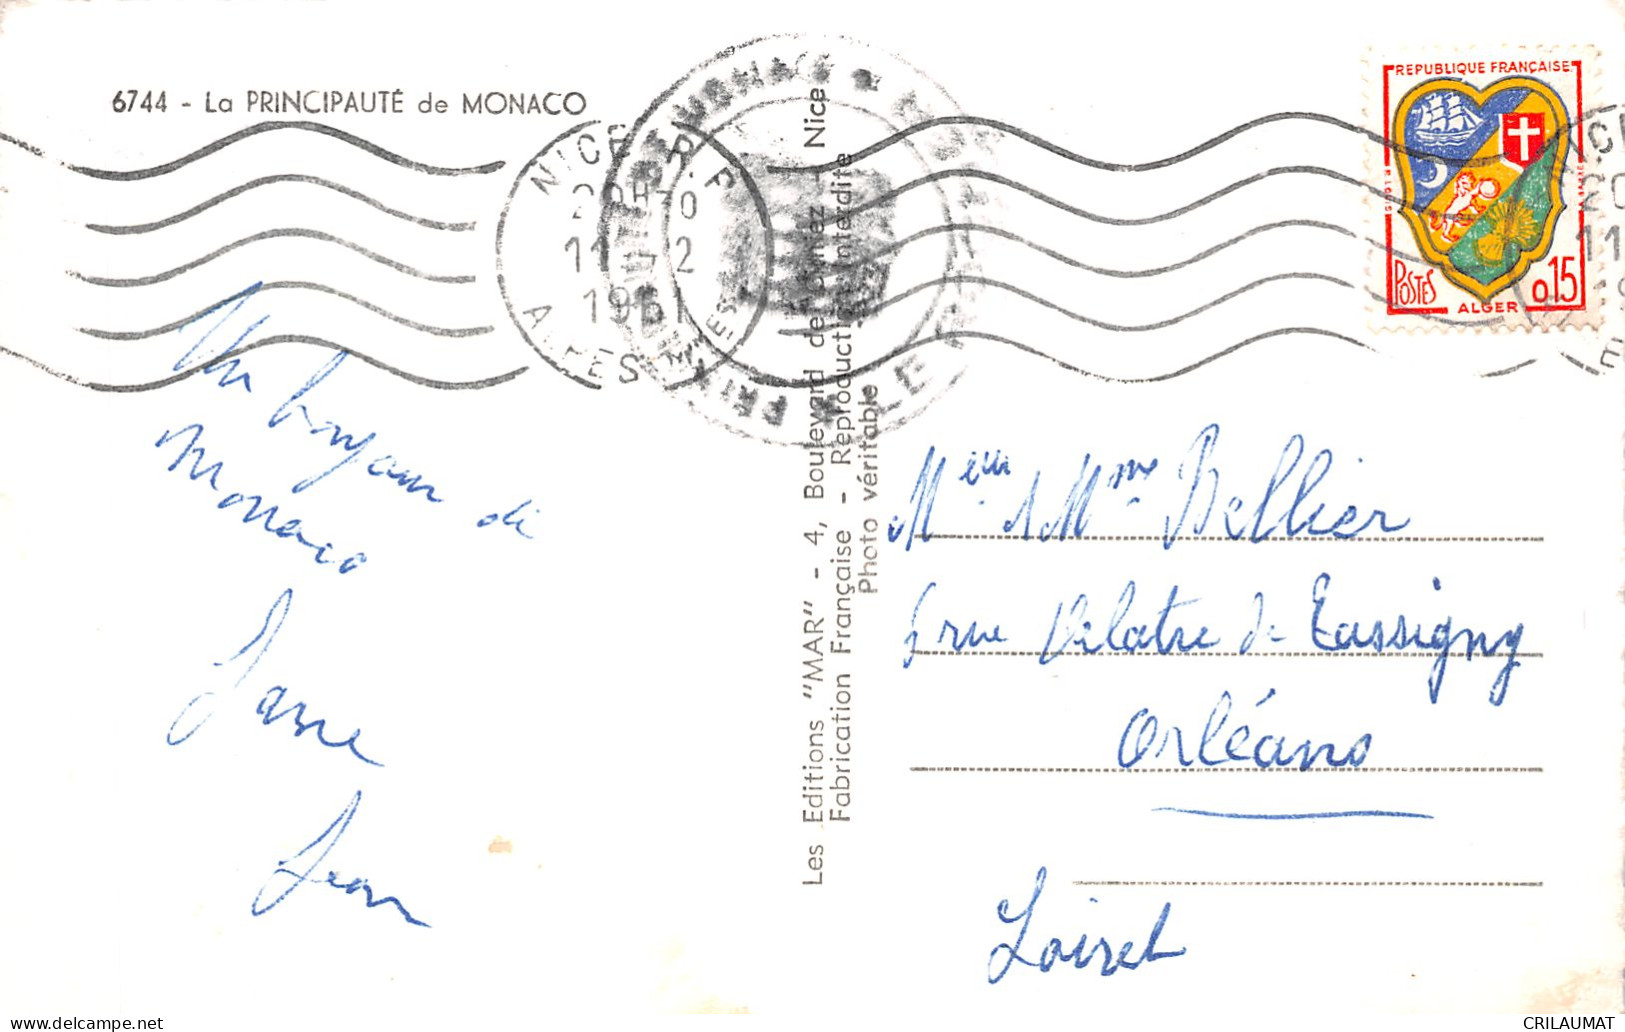 6744 - La PRINCIPAUTÉ de MONACO
NICE
R.F.
20H30
11-12
1961
ALPES MMES
REPUBLIQUE FRANÇAISE
POSTES
ALGER
0,15
Les Editions "MAR" - 4, Boulevard de Nice
Fabrication Française - Reproduction interdite
Photo véritable
Un bonjour de
Monaco
Jean
Meur & Mme Bellier
6 rue Delatre de Tassigny
Orléans
Loiret
CRILAUMAT